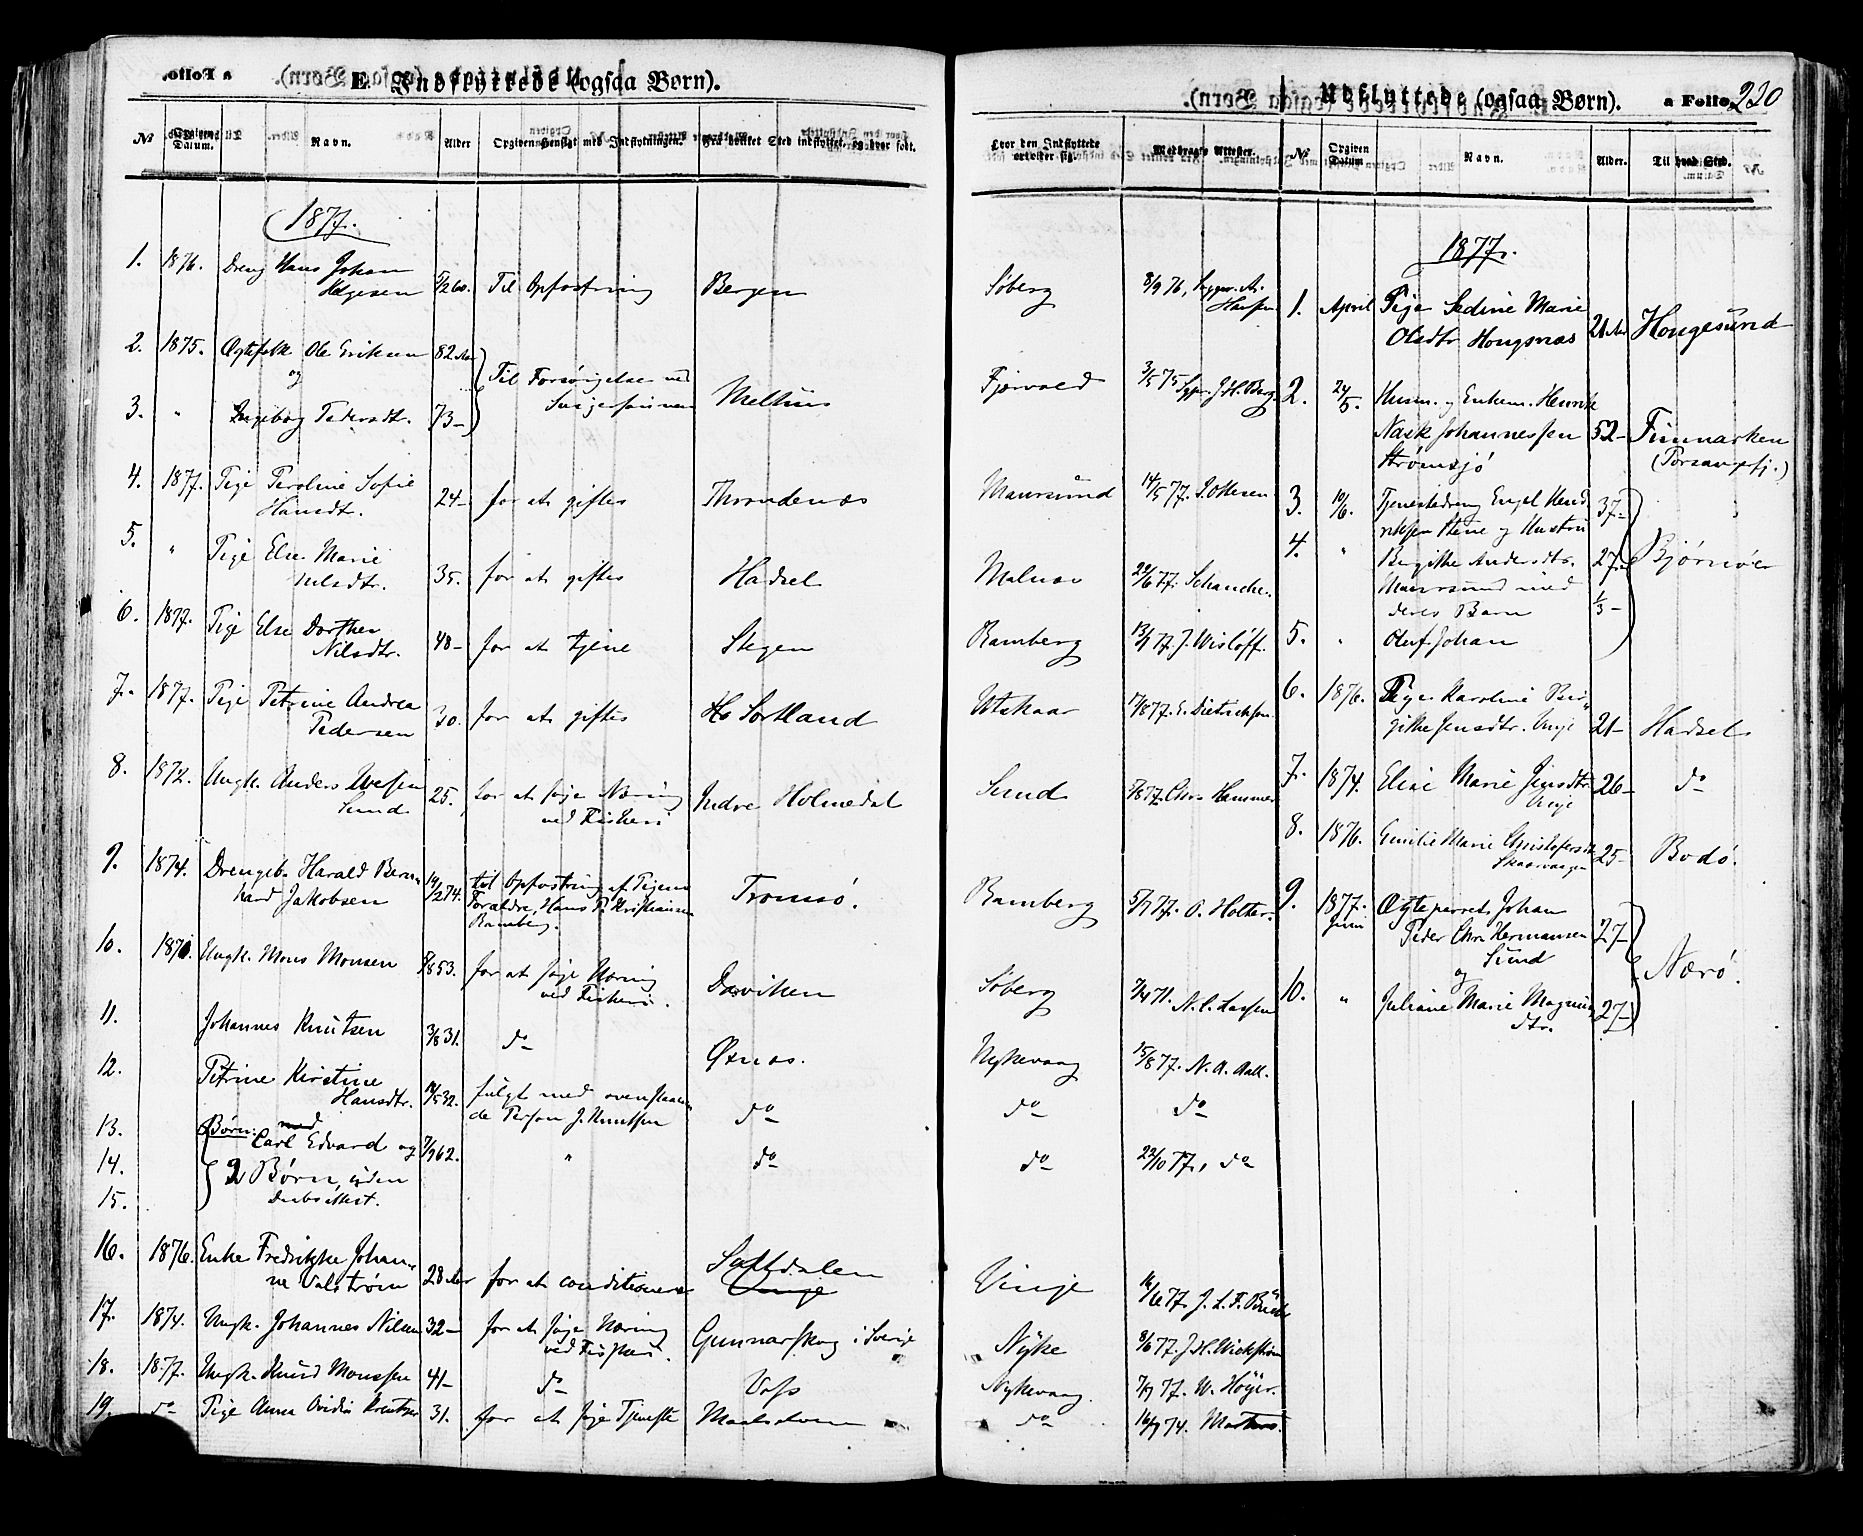 E. Indflyttede (ogsaa Børn).
№ Opgiven Datum. Navn. Alder Opgiven Hensigt med Indflytningen. Fra hvilket Sted indflyttet, og hvor født.
1877.
1. 1876. Dreng Hans Johan
Helgesen 5/2 60. Til Opfostring Bergen
2. 1875. Ægtefolk Ole Eriksen 82 Aar
og Til Forsørgelse ved
Melhus
3. " Ingeborg Pedersdtr. 73-
4. 1877. Pige Peroline Sofie
Hansdt. 24- for at giftes Throndenæs
5. " Pige Else Marie
Nilsdtr. 35. for at giftes Hadsel
6. 1877. Pige Else Dorthea
Nilsdtr. 48- for at tjene Stegen
7. 1877. Pige Petrine Andrea
Pedersen 30. for at giftes Sortland
8. 1872. Ungk. Anders
Sund 25. for at søge Næring
ved Fiskeri Indre Holmedal
9. 1874. Drengeb. Harald Bern-
hard Jakobsen 14/2 74. til Opfostring af Pigens
Forældre, Hans P. Kristiansen
Ramberg. Tromsø.
10. Ungk. Mons Monsen 5/8 53. for at søge Næring
ved Fiskeri. Daviken
11. Johannes Knutsen 3/8 31. do Øxnæs.
12. Petrine Kirstine
Hansdtr. 14/5 32. fulgt med ovenstaaen-
de Person J. Knutsen do
13. Børn: med
Carl Edvard og 7/9 62. " do
14. 2 Børn, uden
15. Daabsattest.
16. 1876. Enke Fredrikke Johan-
ne Valstrøm 28 Aar for at conditionere Saltdalen
Vinje
17. 1874. Ungk. Johannes Nilsen 32- for at søge Næring
ved Fiskeri. Gunnarskog i Sverige
18. 1877. Ungk. Knud Monssen 41- do Voss
19. do Pige Anna Ovidia Knutsen 31. for at søge Tjeneste Maalselven
Hvor den Indflyttede opholder sig. Medbragte Attester.
Søberg 8/9 76,
Hansen
Fjærvold 3/5 75 Sgpr. J. H. Berg
Maursund 14/5 77. Ottesen
Malnæs 22/6 77. Schanche.
Ramberg 13/7 77. J. Wisløff.
Utskaar 7/8 77. E. Dietrichson
Sund 7/8 77. Chr. Hammer
Ramberg 5/7 77. O. Holter.
Søberg 7/4 71. N. C. Lassen
Nykevaag 15/8 77. N. A. Aall.
do do
do 22/10 77, do
Vinje 14/6 77. J. L. F.
Nyke 8/6 77. J. H. Wickstrøm
Nykevaag 7/9 77. W. Høyer.
do 16/9 74.
Udflyttede (ogsaa Børn). a Folio 220
№ Opgiven Datum Navn. Alder. Til hvad Sted.
1877.
1. April Pige Sedine Marie
Olsdtr Hongsnæs 21 Aar Hougesund
2. 24/5. Husm. og Enkem. Henrik
Johannessen 52- Finmarken
Strømsjø (Porsangfj.)
3. 10/6. Tjenestedreng Engel Hend-
riksen Stene og Hustru 37-
4. " Birgitte Andersdtr. 27- Bjørnøer
Maursund med
deres Barn 1/3-
5. " Oluf Johan
6. 1876. Pige Karoline Bir-
gitte Jensdtr. Vinje 21- Hadsel
7. 1874. Elise Marie Jensdtr.
Vinje 26- do
8. 1876. Emilie Marie Christofersdtr.
Skaarvaagen 25- Bodø.
9. 1877. Ægteparret Johan
Juni Peder Chr. Hermansen 27-
Sund
og Nærø.
10. " Juliane Marie Magnus-
dtr. 27-